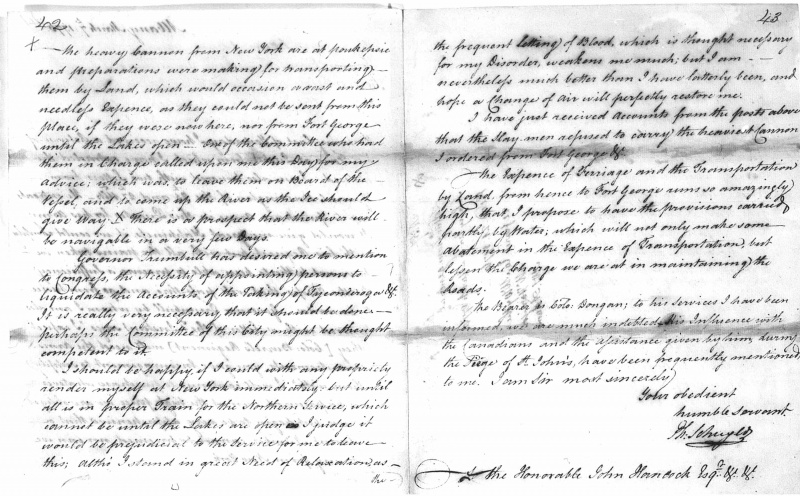 42
X — the heavy Cannon from New York are at poukepsie
and preparations were making for transporting —
them by Land, which would occasion a vast and
needless Expence, as they could not be sent from this
place, if they were now here, nor from Fort George
until the Lakes open — one of the Committee who had
them in Charge called upon me this Day for my
Advice; which was, to leave them on Board of the
Vessel, and to come up the River as the Ice should
give Way X there is a prospect that the River will
be navigable in a very few Days.
Governor Trumbull has desired me to mention
to Congress, the Necessity of appointing persons to
liquidate the Accounts of the Taking of Tyconderoga &c.
It is really very necessary that it should be done —
perhaps the Committee of this City might be thought
competent to it.
I should be happy, if I could with any propriety
render myself at New York immediately but until
all is in proper Train for the Northern Service, which
cannot be until the Lakes are open I judge it
would be prejudicial to the Service for me to leave
this; altho I stand in great Need of Relaxation, as —
the
43
the frequent letting of Blood, which is thought necessary
for my Disorder, weakens me much; but I am —
nevertheless much better than I have latterly been, and
hope a Change of air will perfectly restore me.
I have just received Accounts from the posts above
that the Slay-men refused to carry the heaviest Cannon
I ordered from Fort George &c.
The Expence of Ferriage and the Transportation
by Land from hence to Fort George runs so amazingly
high, that I propose to have the provisions carried
partly by Water; which will not only make some
abatement in the Expence of Transportation, but
lessen the Charge we are at in maintaining the
Roads.
The Bearer is Colo: Dongan; to his services I have been
informed we are much indebted, his Influence with
the Canadians and the assistance given by him, during
the Siege of St. John's, have been frequently mentioned
to me. I am Sir most sincerely
Your obedient
humble servant
Ph: Schuyler
the Honorable John Hancock Esqr. &c. &c.